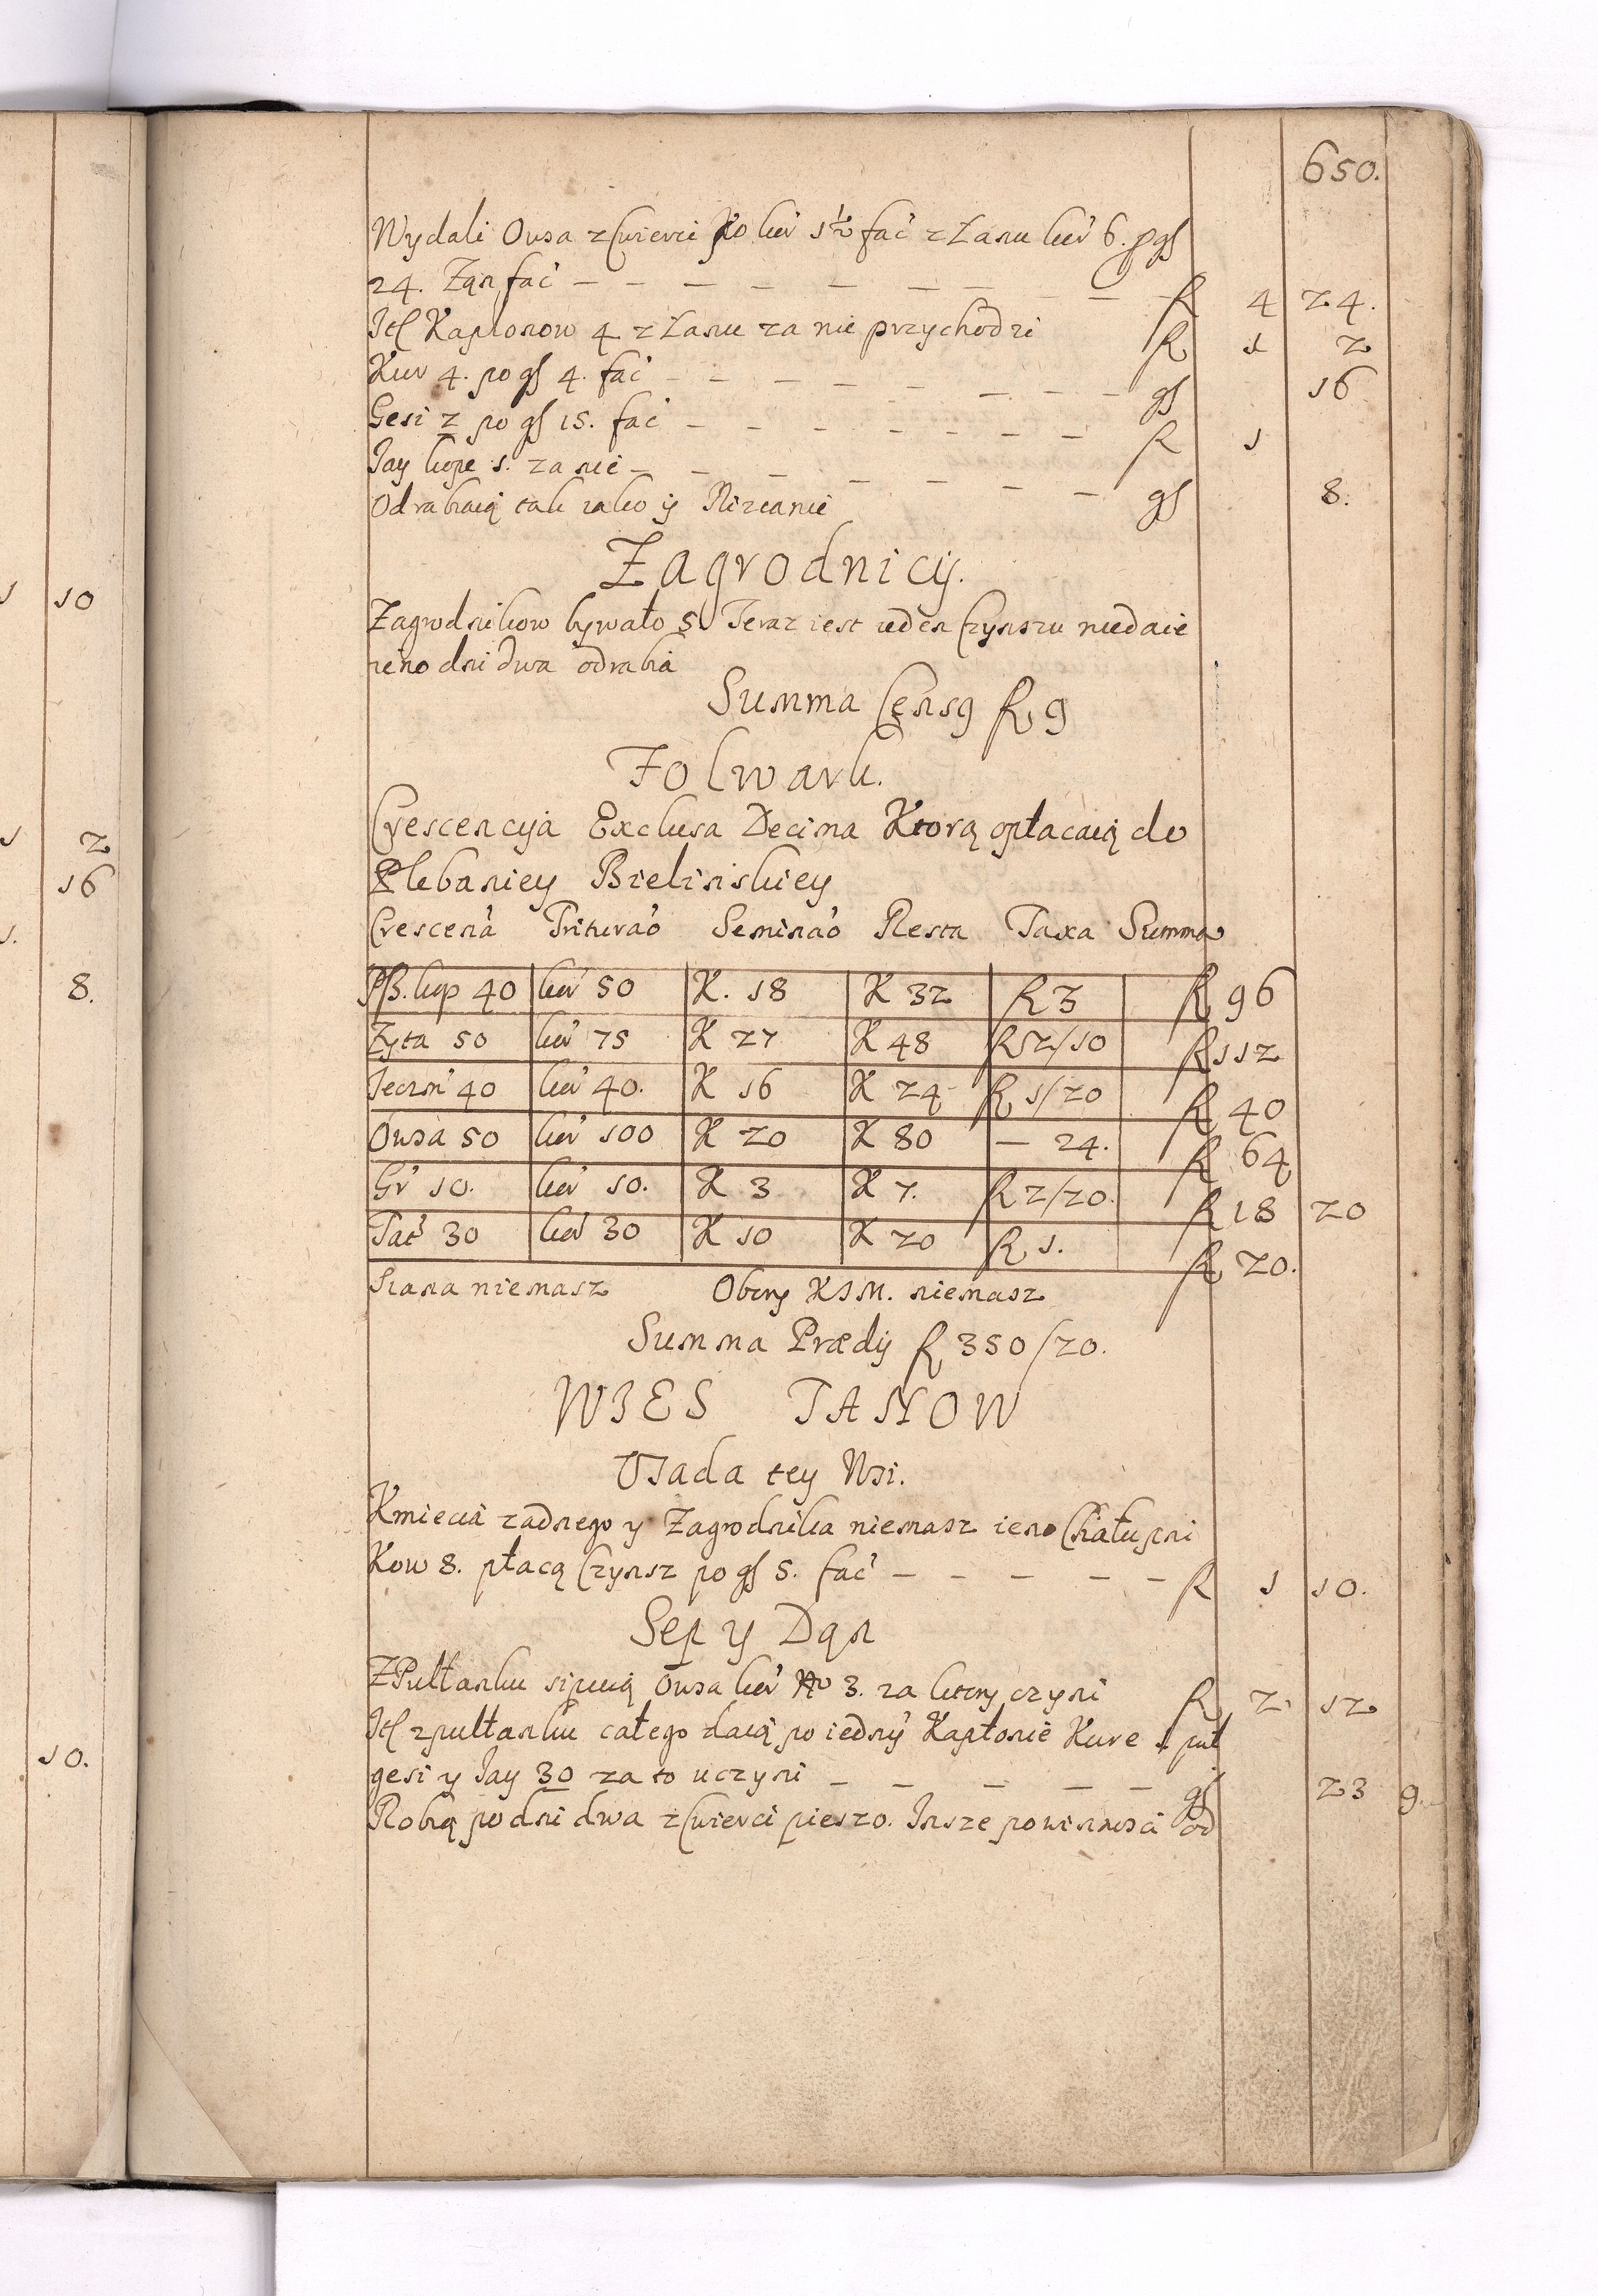 650.
Wydali Owsa z Cwierci po kor 1½ fac z Lanu kor 6. p gſ
24. Zan fac — — — — — — — — fl 4 24.
Itẽ Kaplonow 4 z Lanu za nie przychodzi fl 1 2
Kur 4. po gſ 4. fac — — — — — — — — gſ 16
Gesi 2 po gſ 15. fac — — — — — — — fl 1
Jay kope 1. za nie — — — — — — — — gſ 8.
Odrabiaią tak iako y
Zagrodnicÿ.
Zagrodnikow bywało 5. Teraz iest ieden Czynszu niedaie
ieno dni dwa odrabia
Summa Censꝰ fl 9
Folwark.
Crescencyia Exclusa Decima Ktorą opłacaią do
Plebaniey Bielinskiey
Crescena Triturao Seminao Resta Taxa Summa
Psz. kop 40 kor 50 K. 18 K 32 fl 3 fl 96
Zyta 50 kor 75 K 27 K 48 fl 2/10 fl 112
Jeczm 40 kor 40. K 16 K 24 fl 1/20 fl 40
Owsa 50 kor 100 K 20 K 80 — 24. fl 64
Gr 10. kor 10. K 3 K 7. fl 2/20. fl 18 20
Tat 30 kor 30 K 10 K 20 fl 1. fl 20.
Siana niemasz Obory XIM. niemasz
Summa Prædij fl 350/20.
WIES TANOW
Osada tey Wsi.
Kmiecia zadnego y Zagrodnika niemasz ieno Chałupni
kow 8. płacą Czynsz po gſ 5. fac — — — — — fl 1 10.
Sep y Dan
Z Pułłanku sipuią Owsa kor No 3. za ktory czyni fl 2 12
Itẽ z pułłanku całego daią po iedny Kapłonie Kure 1 puł
gesi y Jay 30 za to uczyni — — — — — gſ 23 9
Robią po dni dwa z Cwierci pieszo. Insze powinnosci od
10
2
16
1.
8.
10.